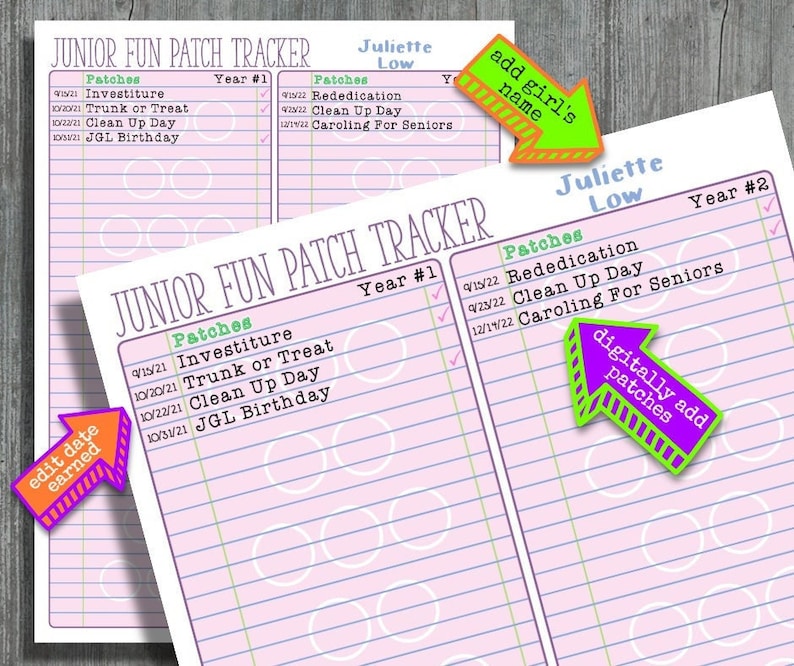 JUNIOR FUN PATCH TRACKER
Juliette
Low
Patches Year #1
9/15/21 Investiture
10/20/21 Trunk or Treat
10/22/21 Clean Up Day
10/31/21 JGL Birthday
Patches
9/15/22 Rededication
9/23/22 Clean Up Day
12/14/22 Caroling For Seniors
add girl's
name
JUNIOR FUN PATCH TRACKER
Juliette
Low
Patches Year #1
9/15/21 Investiture
10/20/21 Trunk or Treat
10/22/21 Clean Up Day
10/31/21 JGL Birthday
Patches Year #2
9/15/22 Rededication
9/23/22 Clean Up Day
12/14/22 Caroling For Seniors
edit date
earned
digitally add
patches